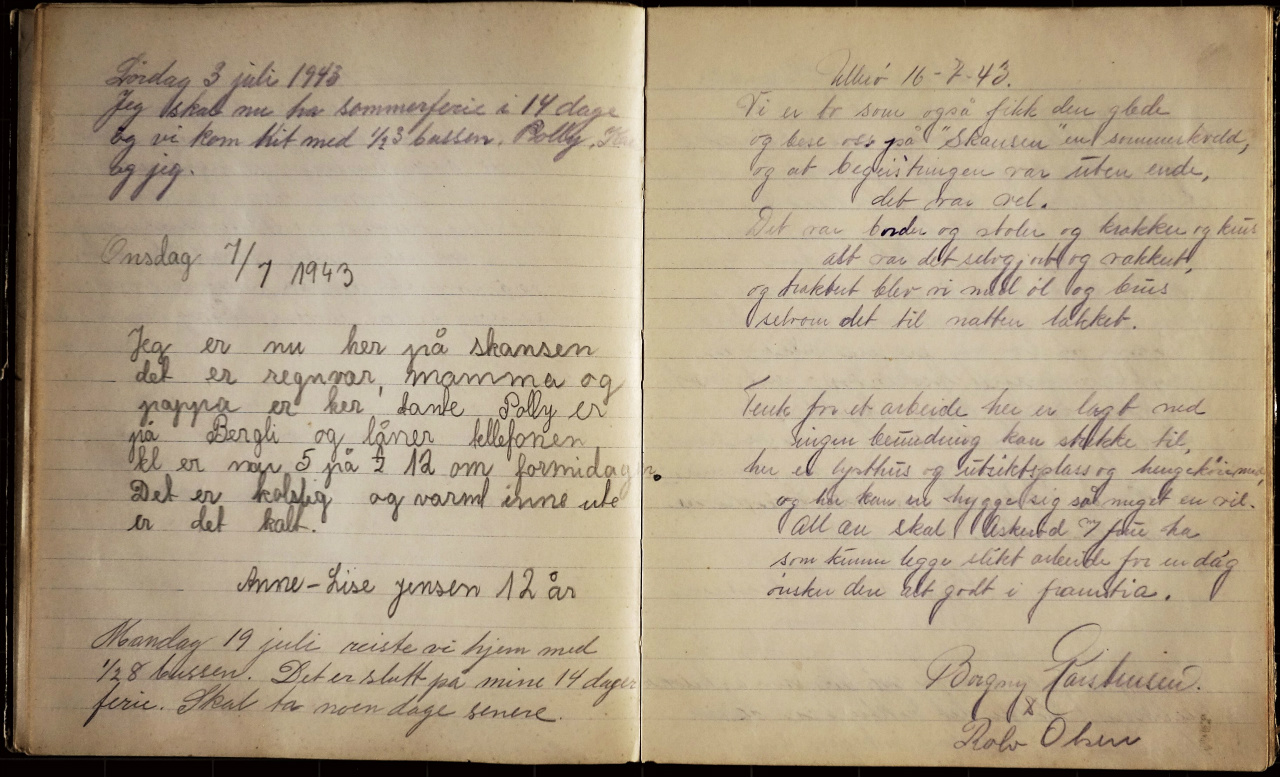 Lørdag 3 juli 1943
Jeg skal nu ha sommerferie i 14 dage
og vi kom hit med 1/2 3 bussen. Polly,
og jeg.
Onsdag 7/7 1943
Jeg er nu her på skansen
det er regnvær, mamma og
pappa er her tante Polly er
på Bergli og låner tellefonen
kl er nør 5 på 1/2 12 om formidagen.
Det er kolslig og varmt inne ute
er det kalt.
Anne-Lise Jensen 12 år
Mandag 19 juli reiste vi hjem med
1/2 8 bussen. Det er slutt på mine 14 dager
ferie. Skal ta noen dage senere.
Ullerø 16-7-43.
Vi er to som også fikk den glede
og bese oss på "Skansen" en sommerkveld,
og at begeistringen var uten ende,
det var vel.
Det var border og stoler og krakker og krus
alt var det selvgjort og vakkert,
og traktert blev vi med øl og brus
selvom det til natten lakket.
Tenk for et arbeide her er lagt ned
ingen beundring kan strekke til,
her er lysthus og utsiktsplass og hengekøie med,
og her kan en hygge sig så meget en vil.
All ære skal frue ha
som kunne legge slikt arbeide for en dag
ønsker dere alt godt i framtia.
Borgny
&
Rolv Olsen